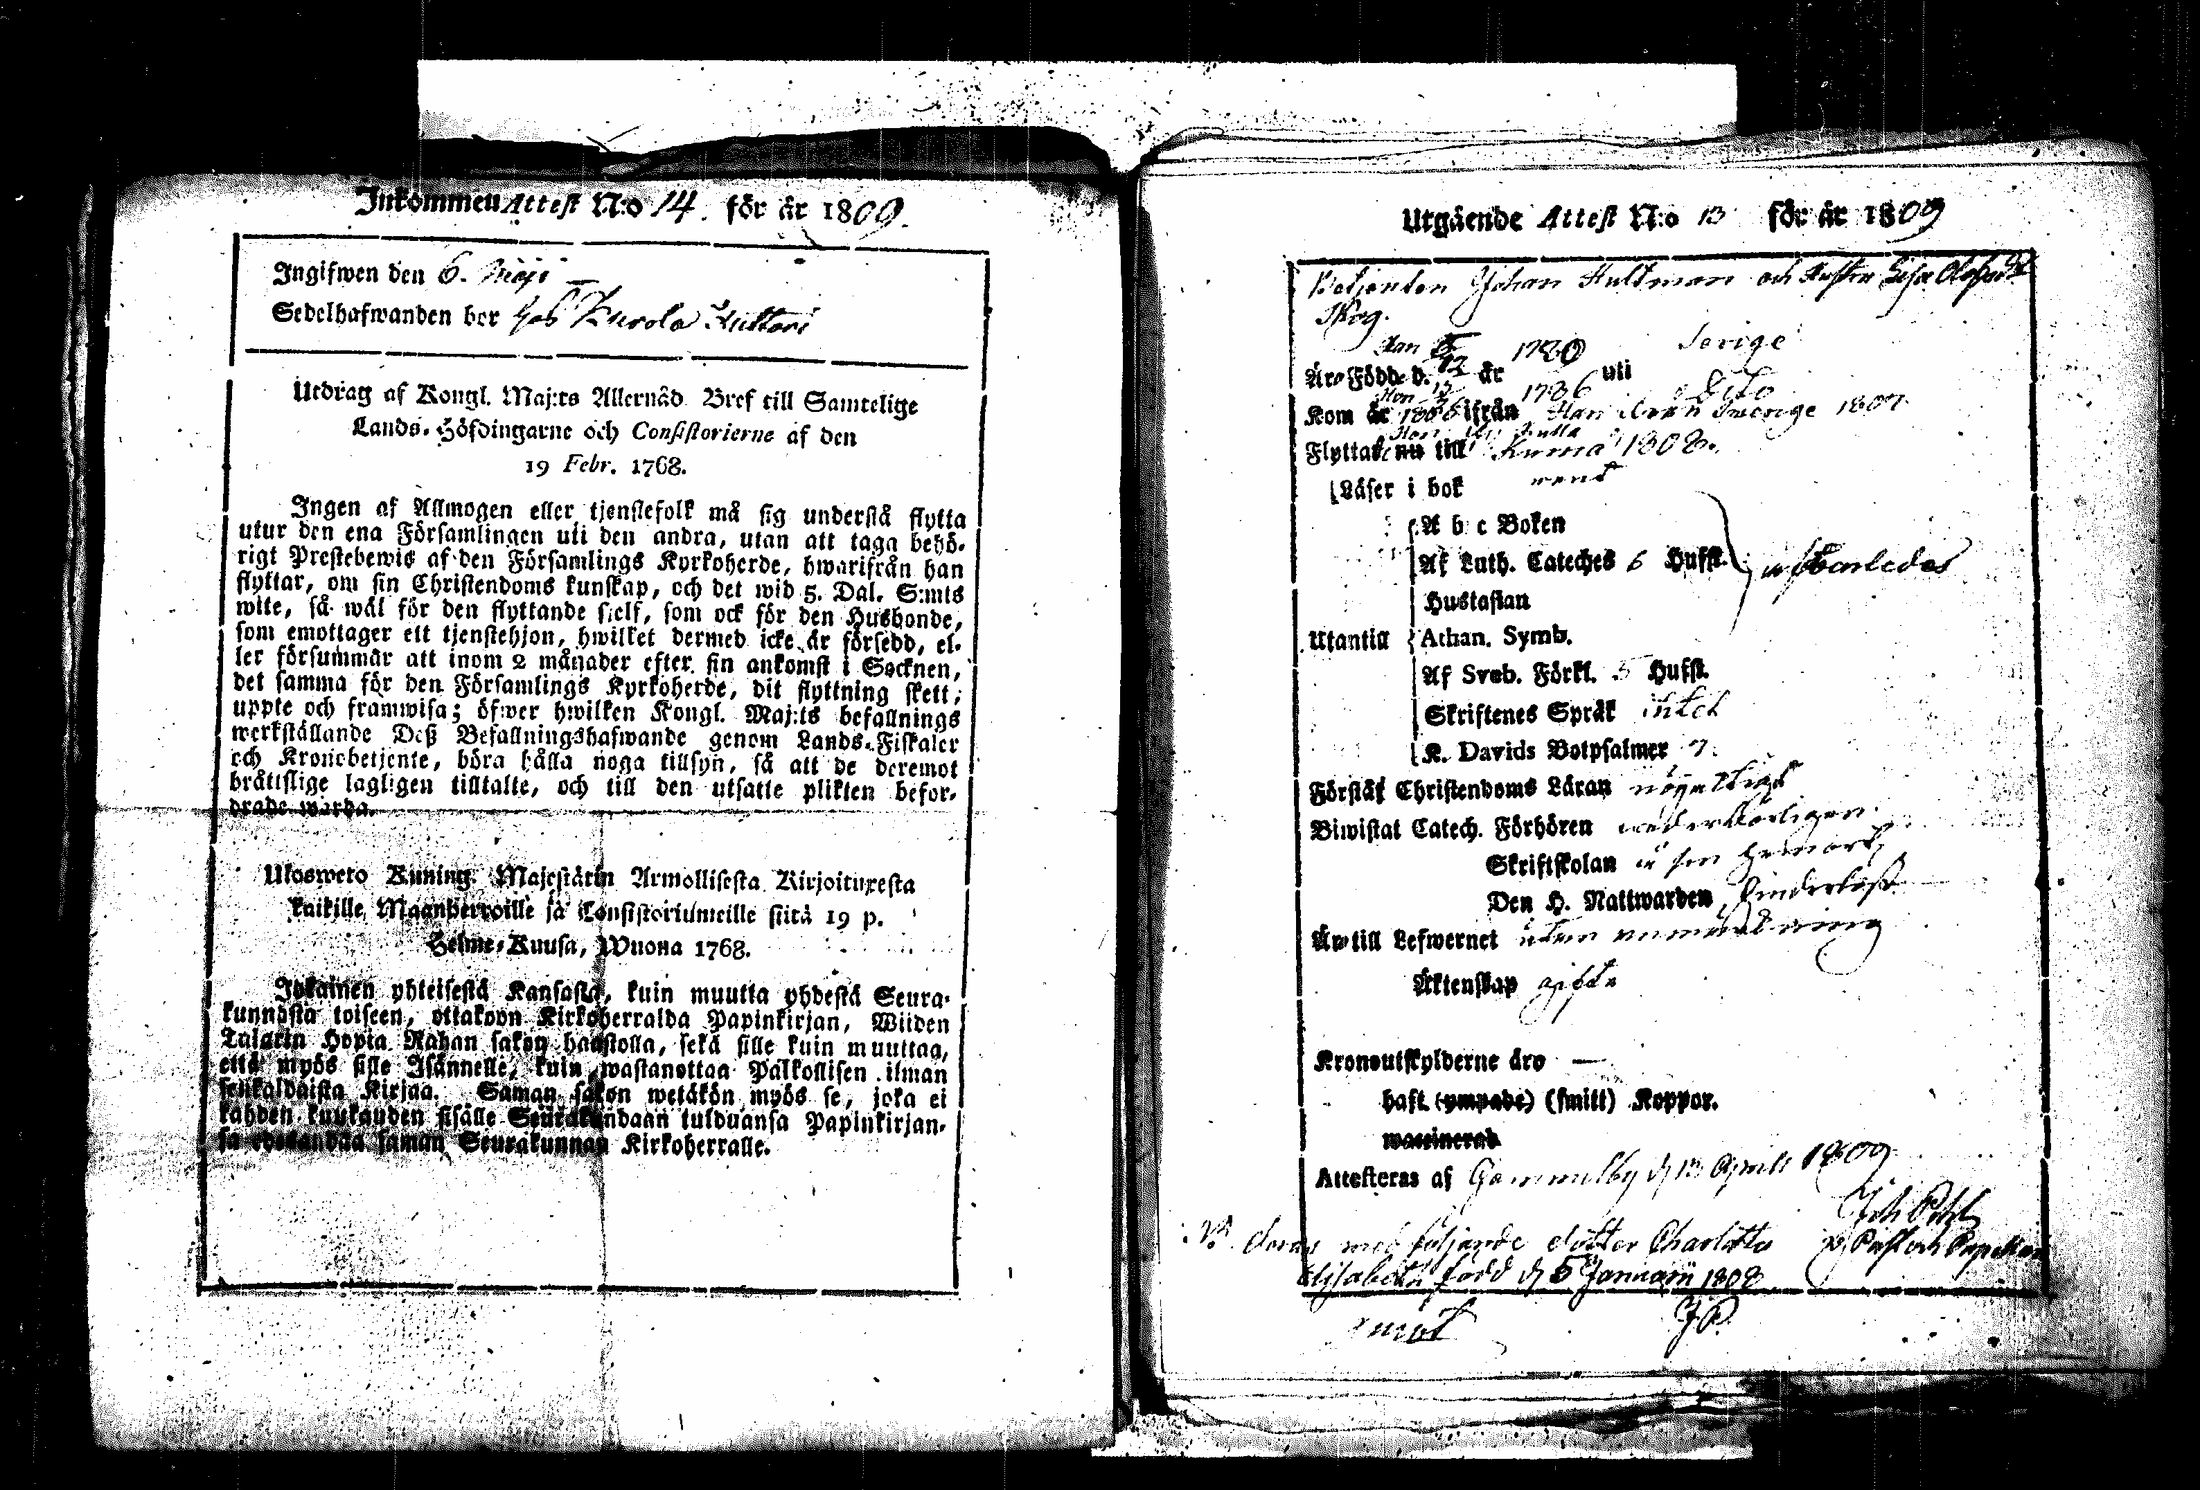 Inkommen Attest N:o 14. för år 1809.
Ingifwen den 6. Maji
Sedelhafwanden bor hos
Utdrag af Kongl. Maj:ts Allernåd. Bref till Samtelige
Lands-Höfdingarne och Consistorierne af den
19 Febr. 1768.
Ingen af Allmogen eller tjenstefolk må sig understå flytta
utur den ena Församlingen uti den andra, utan att taga behö-
rigt Prestebewis af den Församlings Kyrkoherde, hwarifrån han
flyttar, om sin Christendoms kunskap, och det wid 5. Dal. S:mts
wite, så wäl för den flyttande sielf, som ock för den Husbonde,
som emottager ett tjenstehjon, hwilket dermed icke är försedd, el-
ler försummar att inom 2 månader efter sin ankomst i Socknen,
det samma för den Församlings Kyrkoherde, dit flyttning skett,
uppte och framwisa; öfwer hwilken Kongl. Maj:ts befallnings
werkställande Deß Befallningshafwande genom Lands-Fiskaler
och Kronobetjente, böra hålla noga tillsyn, så att de deremot
bråttslige lagligen tilltalte, och till den utsatte plikten befor-
drade warda.
Ulosweto Kuning. Majestätin Armollisesta Kirjoituxesta
kaikille Maanherroille ja Consistoriumeille siitä 19 p.
Helme-Kuusa, Wuona 1768.
Jokainen yhteisestä Kansasta, kuin muutta yhdestä Seura-
kunnasta toiseen, ottakoon Kirkoherralda Papinkirjan, Wiiden
Talarin Hopia Rahan sakon haastolla, sekä sille kuin muuttaa,
että myös sille Isännelle, kuin wastanottaa Palkollisen ilman
senkaldaista Kirjaa. Saman sakon wetäkön myös se, joka ei
kahden kuukauden sisälle Seurakundaan tulduansa Papinkirjan-
sa edesandaa saman Seurakunnan Kirkoherralle.
Utgående Attest N:o 13 för år 1809
Betjenten Johan Hultman och Hustru Lisa
Skog.
Han 1780 Serige
Äro Född d. 12 år uti
Hon 1786
Kom år ifrån Han ifrån Swerige 1807
Flyttade nu till 1808.
Läser i bok rent
A b c Boken
Af Luth. Cateches 6 Hufst.
Hustaflan
Utantill Athan. Symb.
Af Sveb. Förkl. 5 Hufst.
Skriftenes Språk intet
K. Davids Botpsalmer 7.
Förstår Christendoms Läran nöjaktigt
Biwistat Catech. Förhören wederbörligen.
Skriftskolan å sin hemort
Den H. Nattwarden
Äro till Lefwernet utan anmärkning
Äktenskap gifte
Kronoutskylderne äro —
haft (ympade) (smitt) Koppor.
waccinerad
Attesteras af Gammelby d 13 April 1809
med följande dotter Charlotta
Elisabeth född d 5 Januarii 1808
J P.